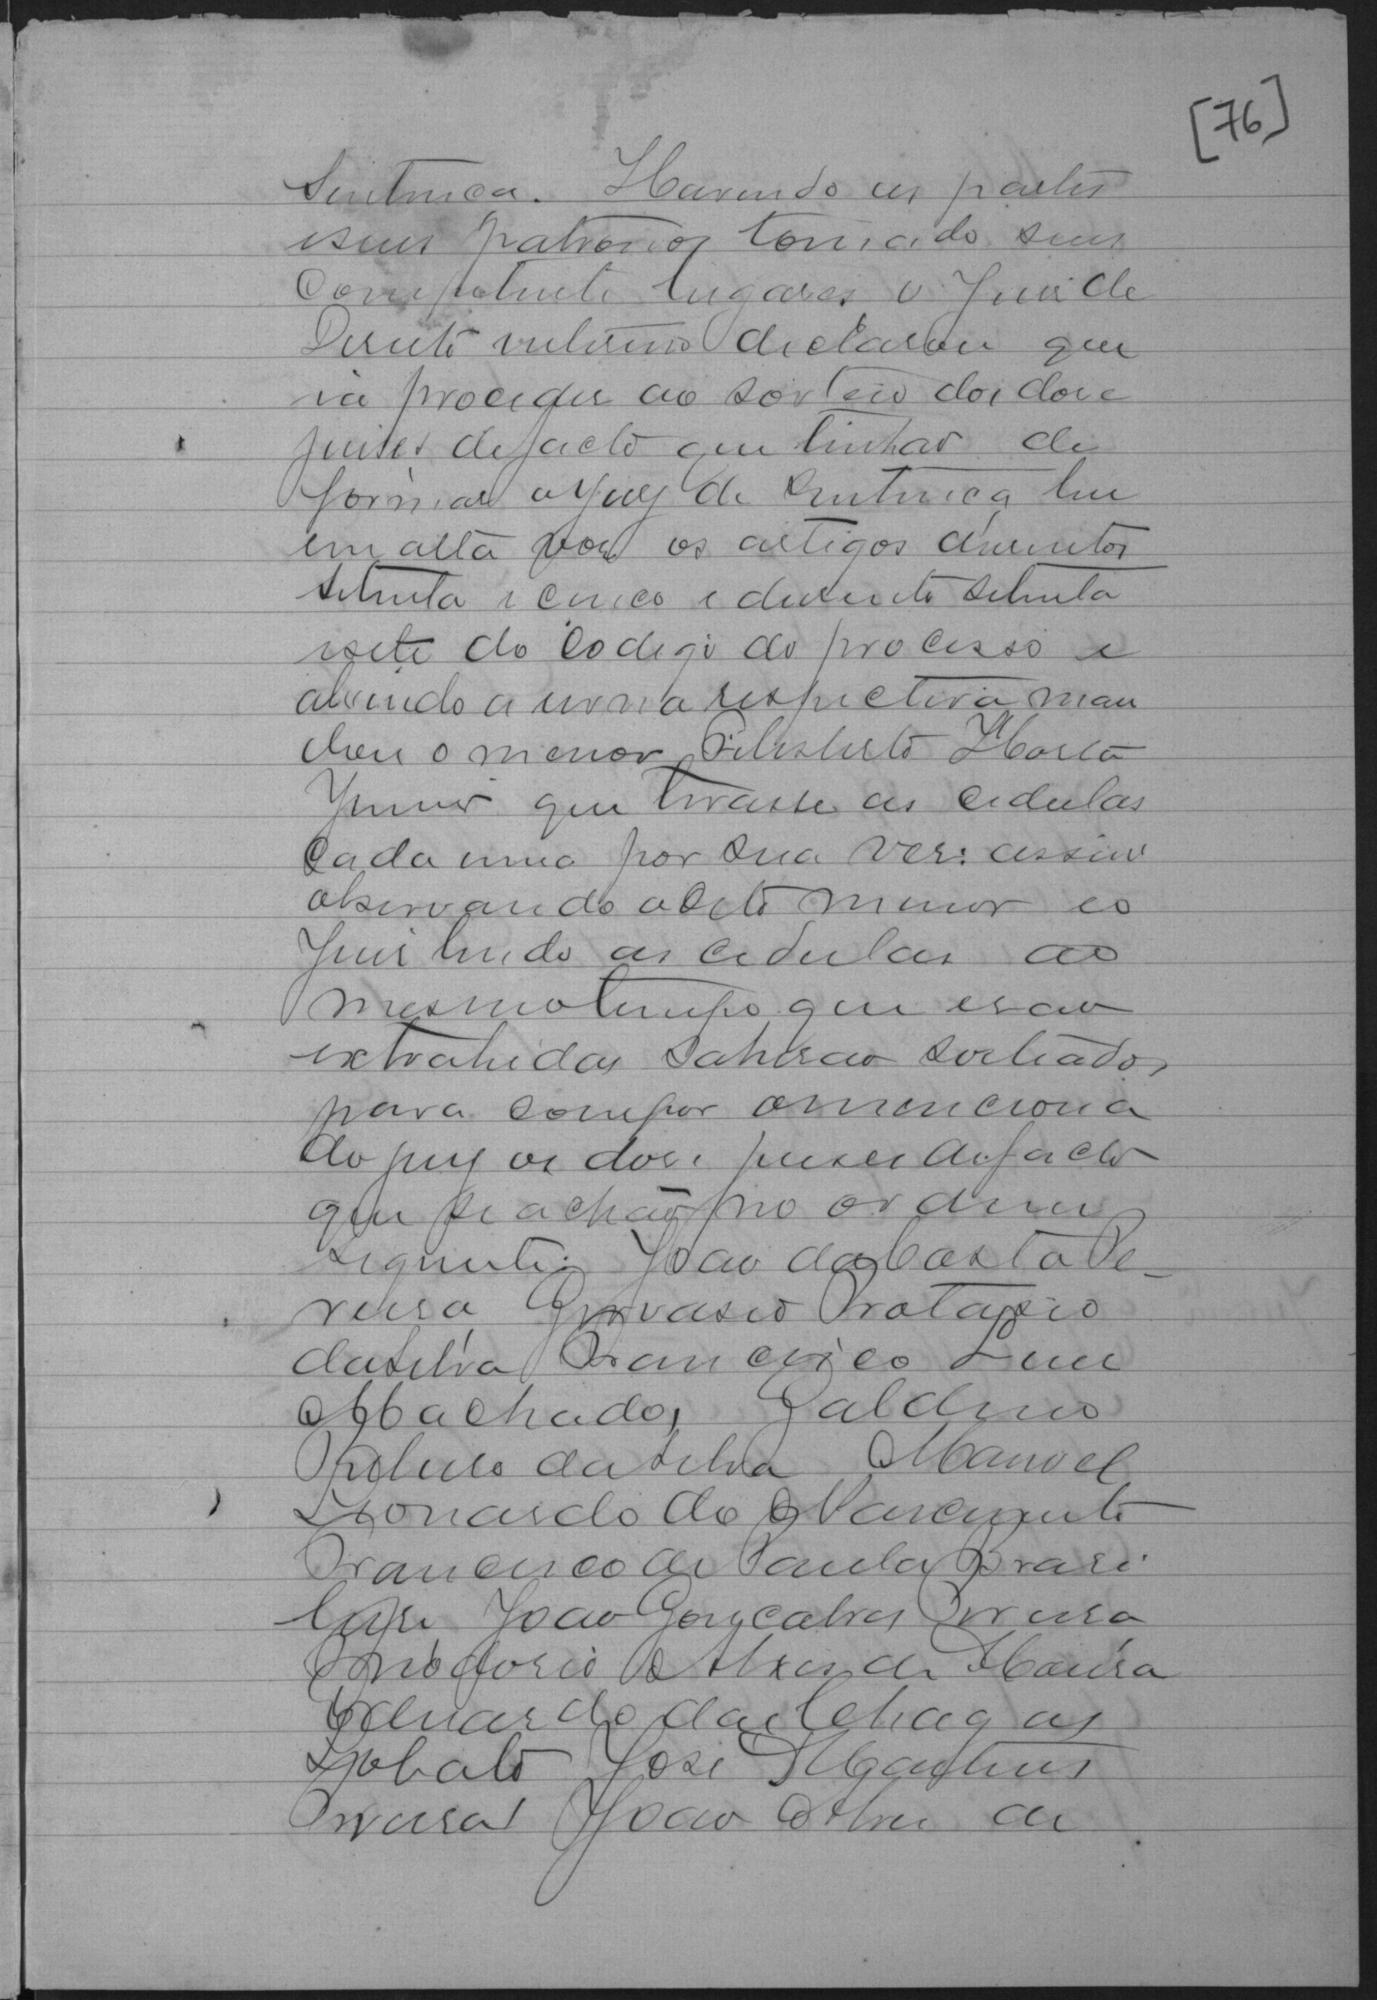 [76]
Sentença. Havendo as partes
e seus patronos tomado seus
Competente lugares o Juiz de
Direito interino declarou que
ia proceder ao sorteio dos doze
juises de facto que tinhão de
formar o jury de Sentença leu
em alta voz os artigos duzentos
setenta e cinco e duzento setenta
e sete do Codigo do processo e
abrindo a urna respectiva man
dou o menor Felisberto Horta
Junior que tirasse as cedulas
Cada uma por sua vez: assim
observando o dito menor e o
Juiz lendo as cedulas ao
mesmo tempo que erão
extrahidas sahirão sorteados
para compor o menciona
do jury os doze juises de facto
que se achão no ordem
seguinte: João da Costa Pe-
reira Gervasio Protasio
da Silva Francisco Luis
Machado, Galdino
da Silva Manoel
Leonardo do Nascimento
Francisco de Paula Brasi
João Gonçalves Pereira
Alves de Moura
Eduardo das Chagas
Lobato José Martins
Pereira João Alves de